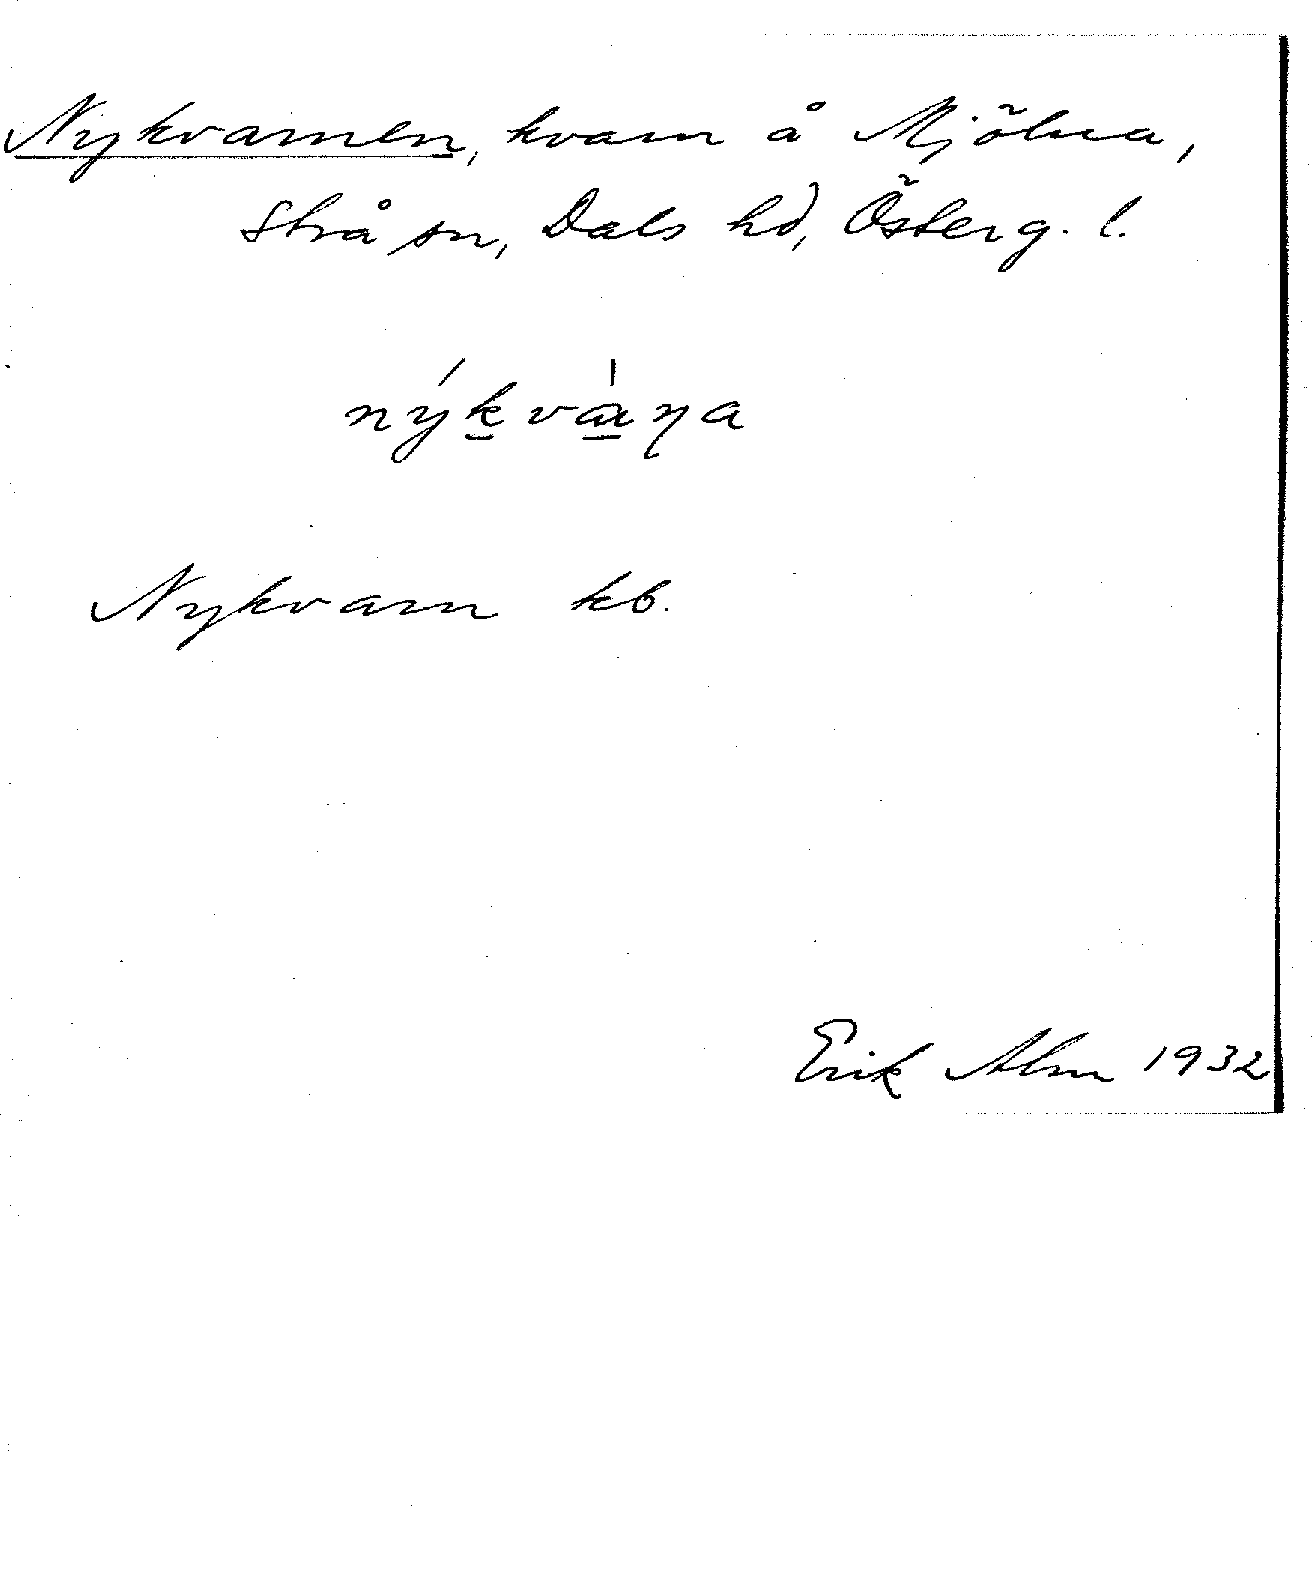 Nykvarnen, kvarn å Mjölna,
Strå sn, Dals hd, Österg. l.
nýk̲vа̲̀ɳa
Nykvarn kb.
Erik Alm 1932